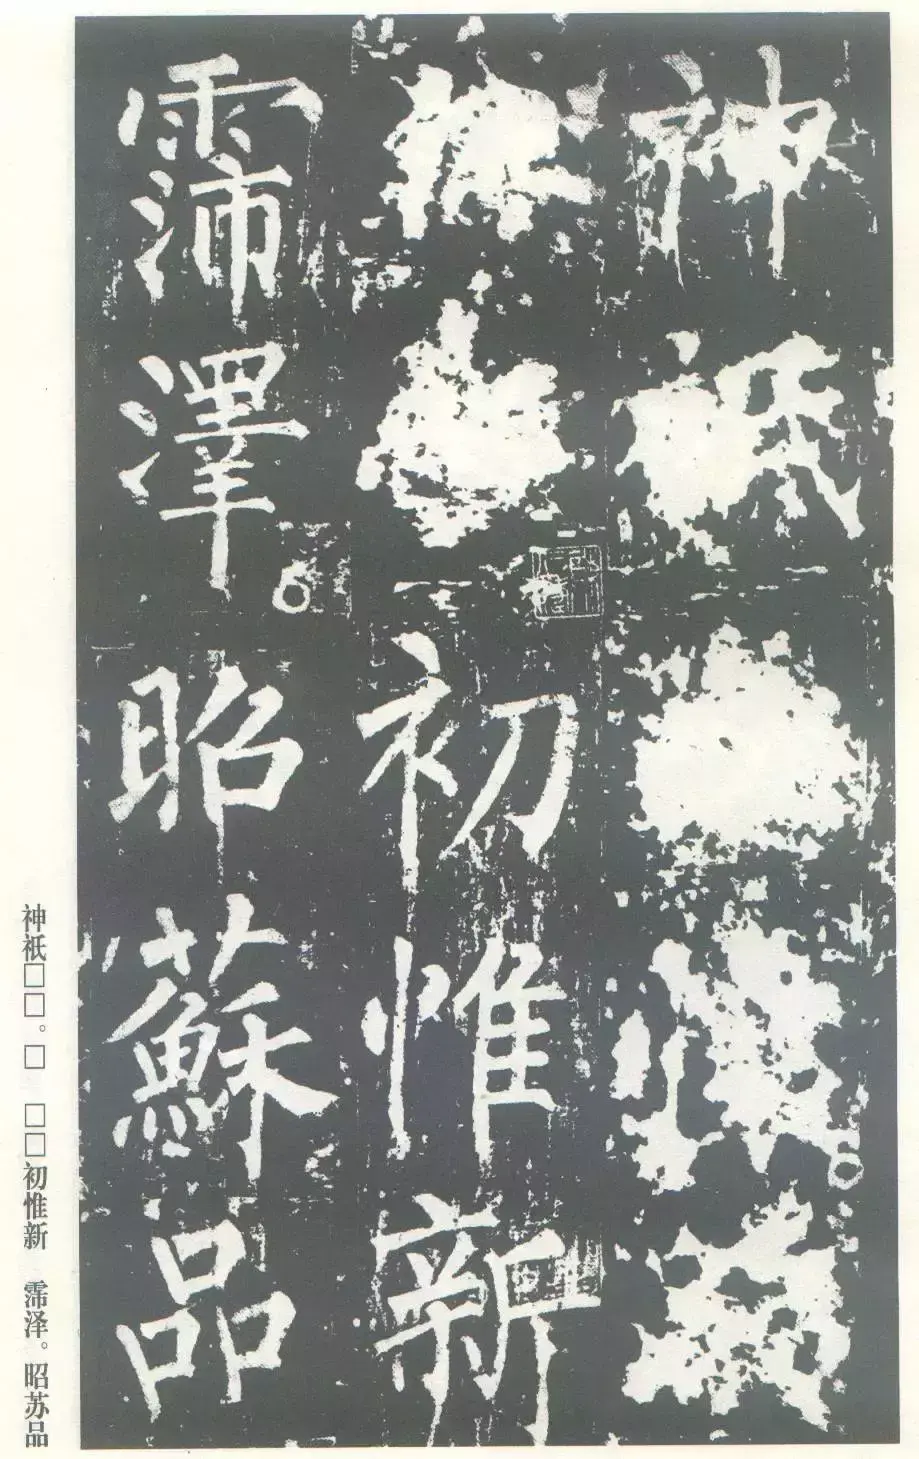 神祇
初惟新
霈澤昭蘇品
神祇□□。□ □□初惟新 霈泽。昭苏品